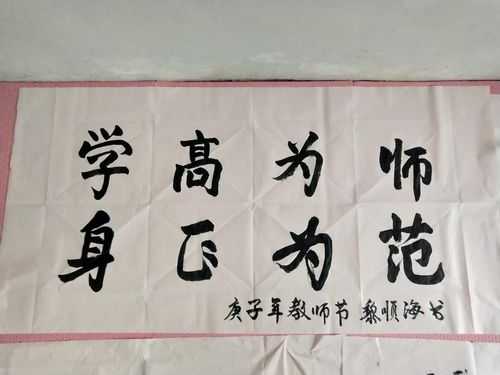 学高为师
身正为范
庚子年教师节 黎顺海书